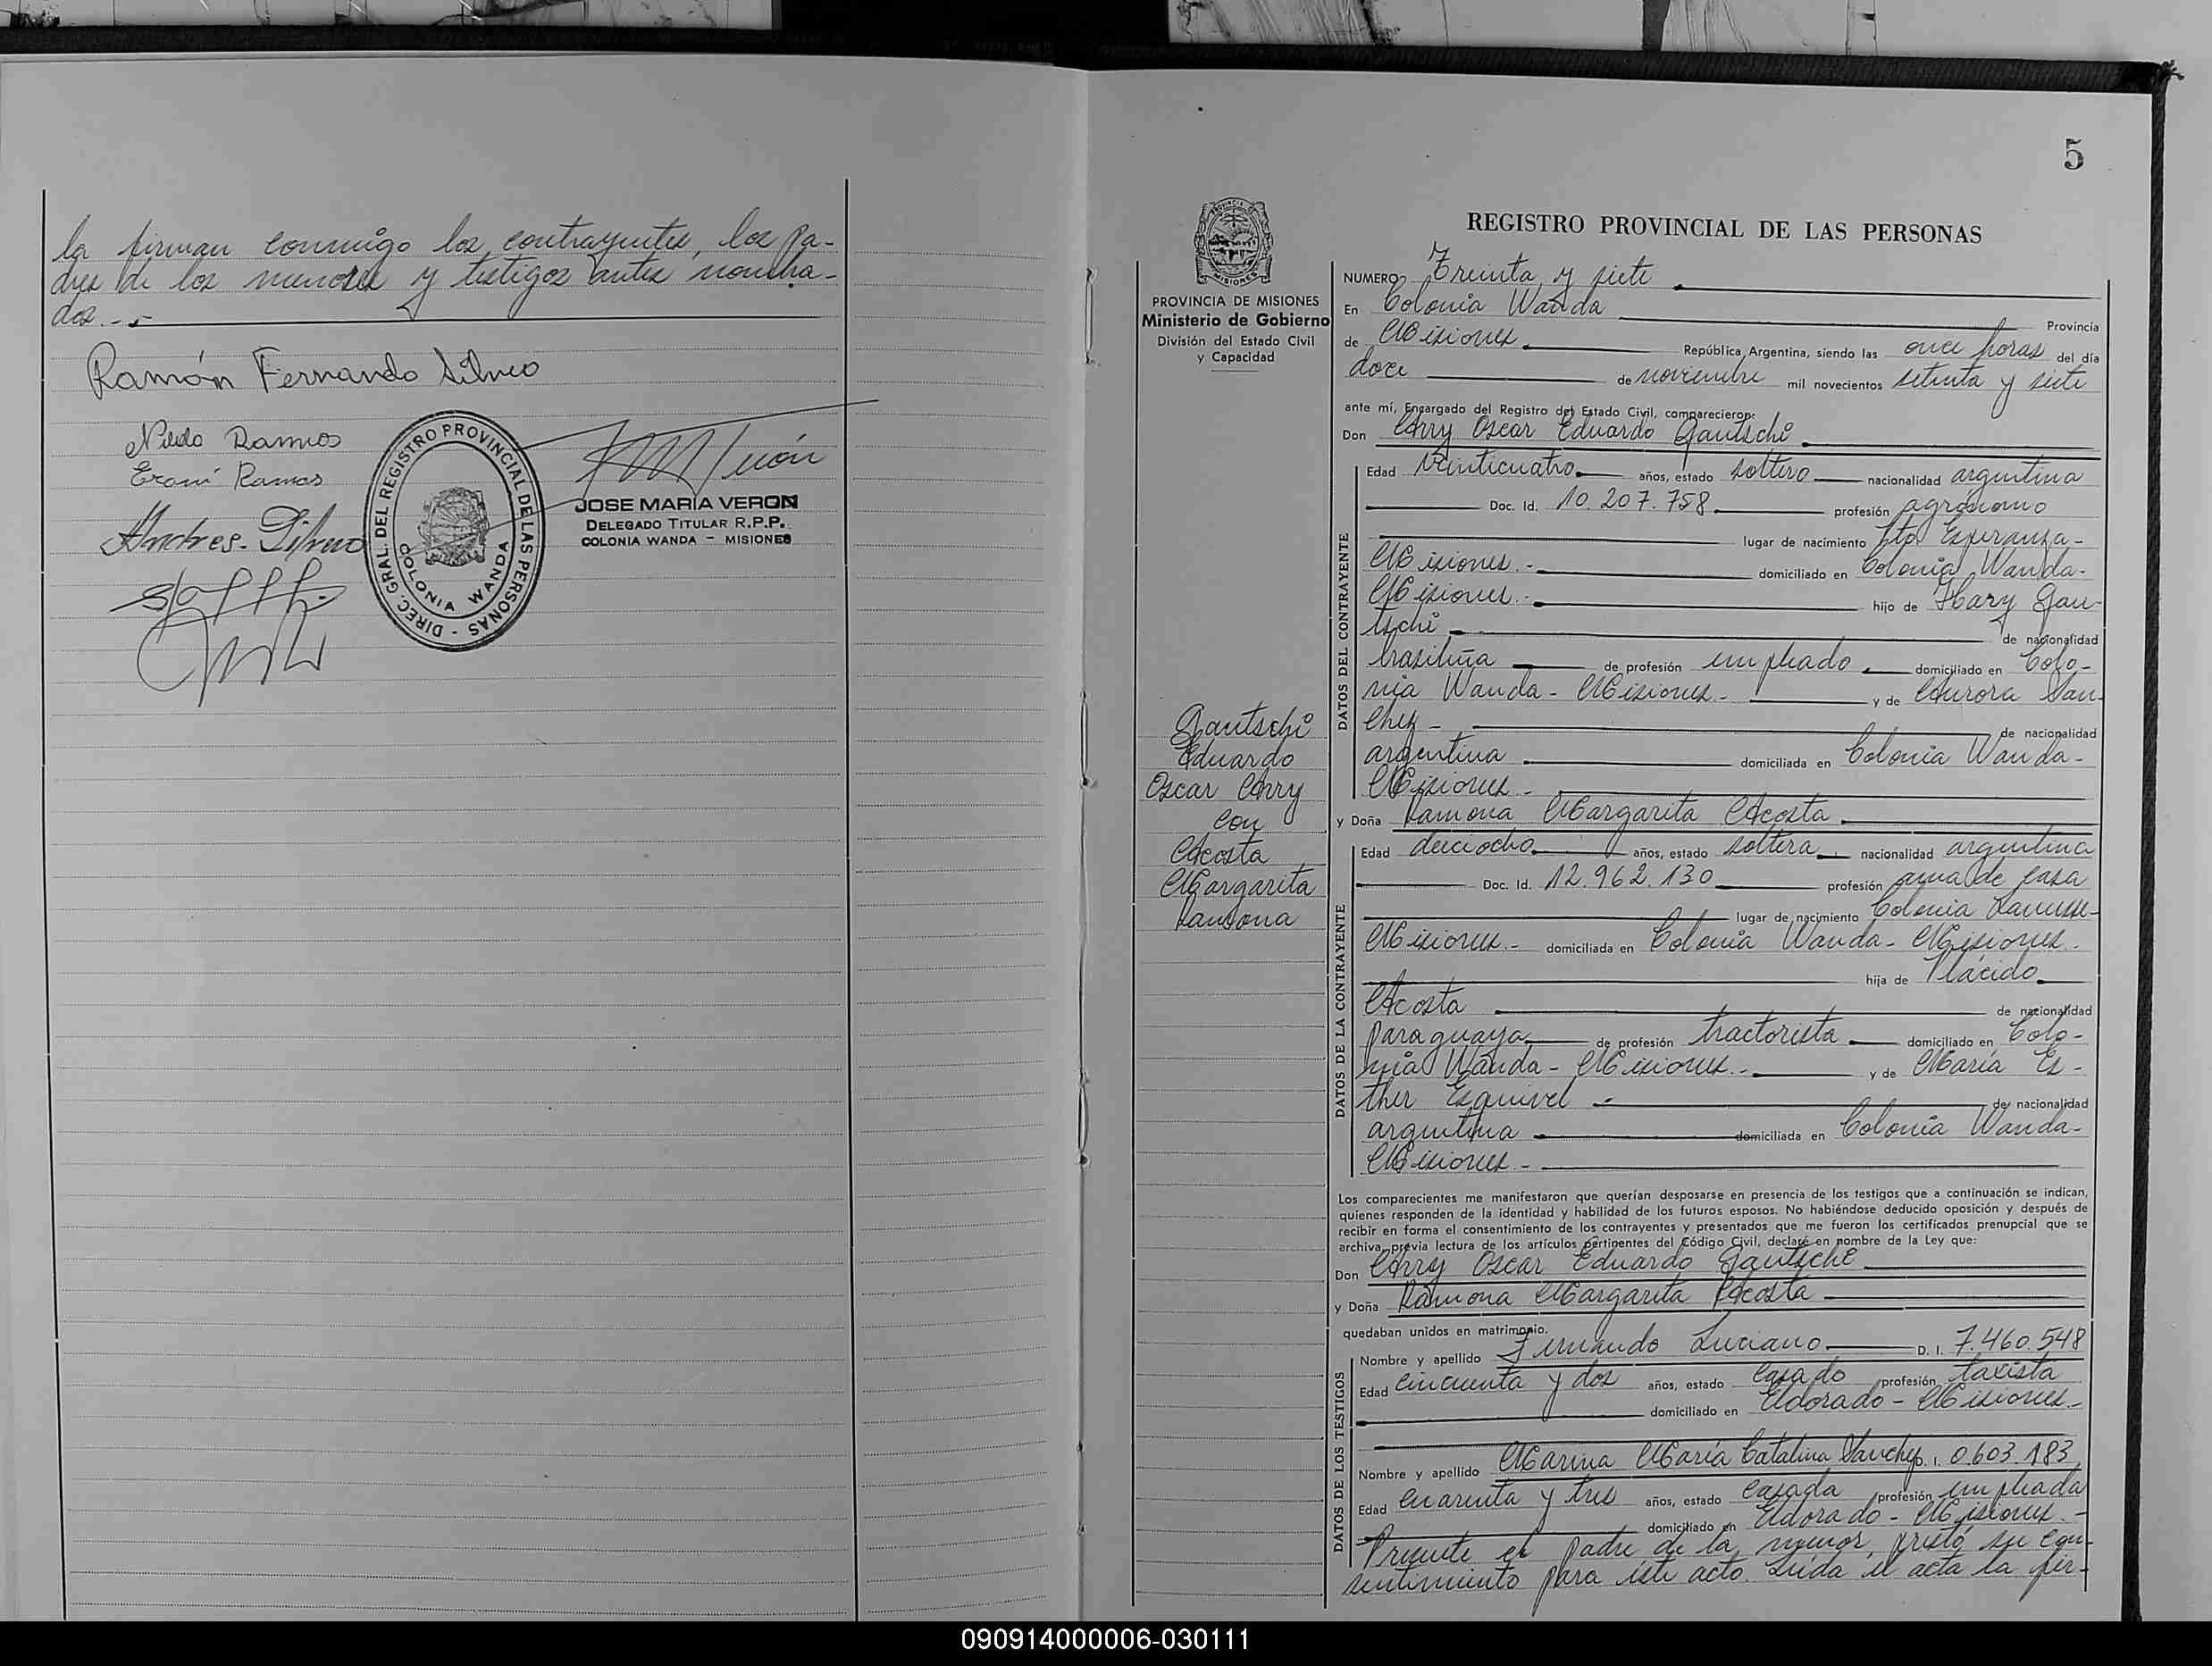 la firman conmigo los contrayentes, los pa-
dres de los menores y testigos antes nombra-
dos.-
Ramón Fernando Silveo
Nildo Ramos
Eraní Ramos
Andres
DIREC. GRAL. DEL REGISTRO PROVINCIAL DE LAS PERSONAS -
COLONIA WANDA
JOSE MARIA VERON
DELEGADO TITULAR R.P.P.
COLONIA WANDA - MISIONES
5
PROVINCIA DE MISIONES
Ministerio de Gobierno
División del Estado Civil
y Capacidad
Gautschi
Eduardo
Oscar Arry
con
Acosta
Margarita
Ramona
REGISTRO PROVINCIAL DE LAS PERSONAS
NUMERO Treinta y siete
En Colonia Wanda Provincia
de Misiones República Argentina, siendo las once horas del día
doce de noviembre mil novecientos setenta y siete
ante mí, Encargado del Registro del Estado Civil, comparecieron:
Don Arry Oscar Eduardo Gautschi
DATOS DEL CONTRAYENTE
Edad veinticuatro años, estado soltero nacionalidad argentina
Doc. Id. 10.207.758 profesión agrónomo
lugar de nacimiento Pto Esperanza-
Misiones.- domiciliado en Colonia Wanda-
Misiones.- hijo de Hary Gau-
tschi de nacionalidad
brasileña de profesión empleado domiciliado en Colo-
nia Wanda - Misiones.- y de Aurora San-
chez - de nacionalidad
argentina domiciliada en Colonia Wanda-
Misiones.-
y Doña Ramona Margarita Acosta
DATOS DE LA CONTRAYENTE
Edad dieciocho años, estado soltera nacionalidad argentina
Doc. Id. 12.962.130 profesión ama de casa
lugar de nacimiento Colonia Lanusse-
Misiones.- domiciliada en Colonia Wanda- Misiones.-
hija de Plácido
Acosta de nacionalidad
paraguaya de profesión tractorista domiciliado en Colo-
nia Wanda - Misiones.- y de María Es-
ther Esquivel - de nacionalidad
argentina domiciliada en Colonia Wanda-
Misiones.-
Los comparecientes me manifestaron que querían desposarse en presencia de los testigos que a continuación se indican,
quienes responden de la identidad y habilidad de los futuros esposos. No habiéndose deducido oposición y después de
recibir en forma el consentimiento de los contrayentes y presentados que me fueron los certificados prenupcial que se
archiva, prévia lectura de los artículos pertinentes del Código Civil, declaré en nombre de la Ley que:
Don Arry Oscar Eduardo Gautschi
y Doña Ramona Margarita Acosta
quedaban unidos en matrimonio.
DATOS DE LOS TESTIGOS
Nombre y apellido Fernando Luciano D. I. 7.460.548
Edad cincuenta y dos años, estado casado profesión taxista
domiciliado en Eldorado - Misiones.-
Nombre y apellido Marina María Catalina Sanchez D. I. 0.603.183
Edad cuarenta y tres años, estado casada profesión empleada
domiciliado en Eldorado - Misiones.-
Presente el padre de la menor, prestó su con-
sentimiento para éste acto. Leída el acta la fir-
090914000006-030111